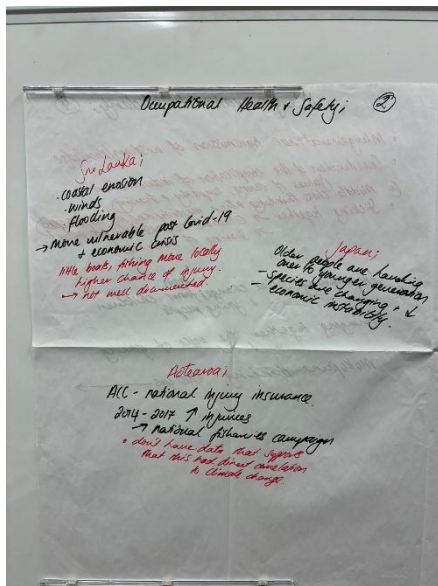 Occupational Health + Safety;
②
Sri Lanka;
• coastal erosion
• winds
• flooding
→ More vulnerable post Covid-19
+ economic crisis
little boats, fishing more locally
higher chance of injury.
→ not well documented.
Japan;
Older people are handing
over to younger generation
- species are changing, ↓
economic instability.
Aotearoa;
ACC - national injury insurance.
2014-2017 ↑ injuries
→ national fisheries campaign
• don't have data that supports
that this had direct correlation
to climate change